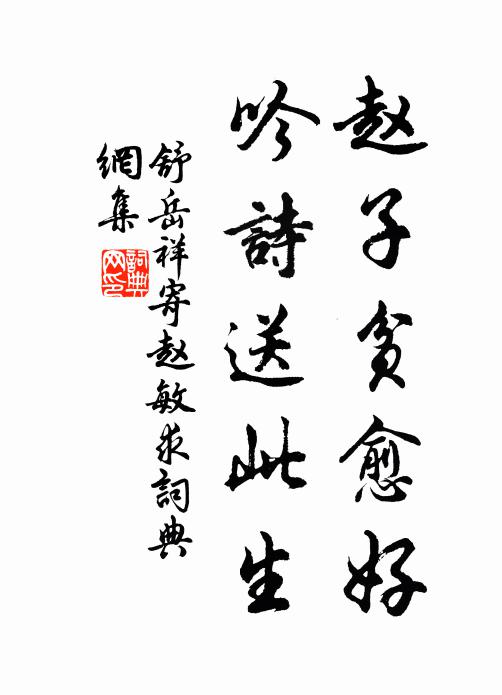 赵子贫愈好
吟詩送此生
舒岳祥寄赵敏求詞典
網集
詞典
网印